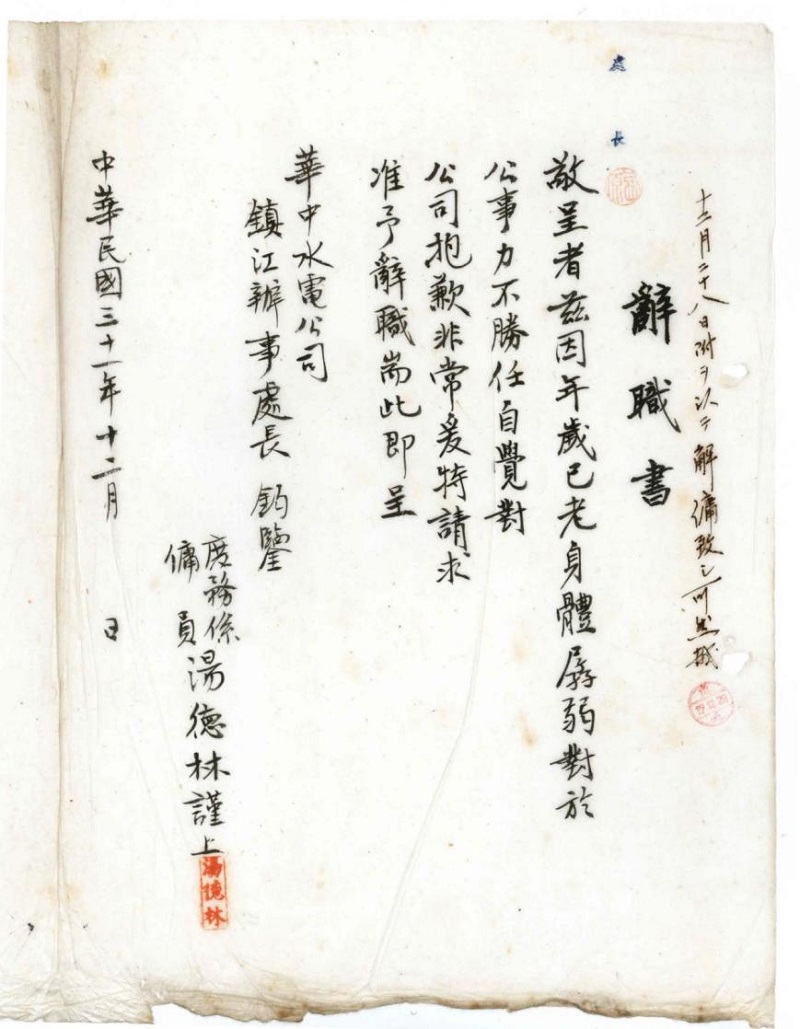 十二月二十八日附ヲ以テ解傭致シ可然哉
處長
辭職書
敬呈者茲因年歲已老身體孱弱對於
公事力不勝任自覺對
公司抱歉非常爰特請求
准予辭職耑此即呈
華中水電公司
鎮江辦事處長 鈞鑒
庶務係
傭員
湯德林謹上
湯德林
中華民國三十一年十二月 日